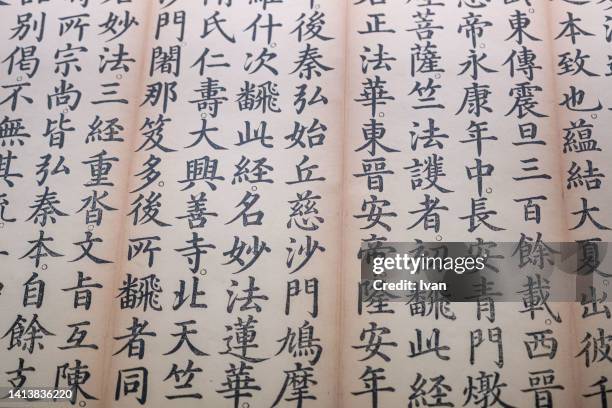 本致也。蘊結大夏。出彼千
東傳震旦三百餘載。西晉
帝永康年中。長安青門燉
菩薩竺法護者。初飜此經
名正法華。東晉安帝隆安年
後秦弘始丘慈沙門鳩摩
什。次飜此經名妙法蓮華
氏仁壽大興善寺。北天竺
沙門闍那笈多。後所飜者同
名妙法。三經重沓。文旨互陳
所宗尚。皆弘秦本。自餘支
別偈。不無其
gettyimages
Credit: Ivan
1413836220